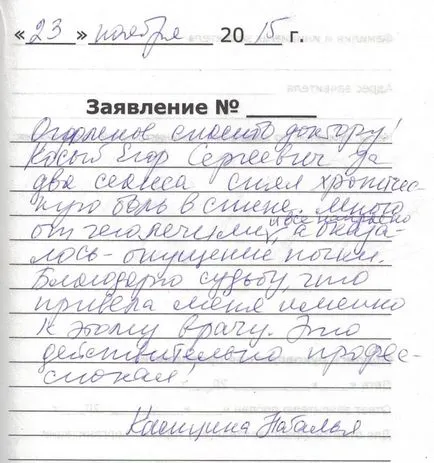 « 23 » ноября 2015 г.
Заявление № ______
Огромное спасибо доктору!
Косый Егор Сергеевич за
два сеанса снял хроничес-
кую боль в спине. Много
от чего лечили, и все неправильно
а оказа-
лось - опущение почки.
Благодарю судьбу, что
привела меня именно
к этому врачу. Это
действительно профес-
сионал!
Наталья